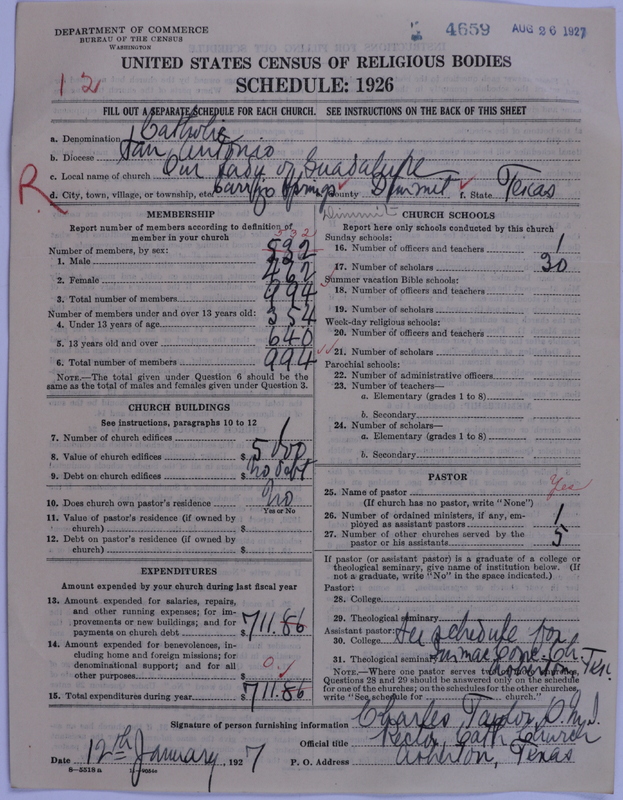 DEPARTMENT OF COMMERCE
BUREAU OF THE CENSUS
WASHINGTON
4659 AUG 26 1927
UNITED STATES CENSUS OF RELIGIOUS BODIES
SCHEDULE: 1926
12
FILL OUT A SEPARATE SCHEDULE FOR EACH CHURCH. SEE INSTRUCTIONS ON THE BACK OF THIS SHEET
a. Denomination Catholic
b. Diocese San Antonio
c. Local name of church Our Lady of Guadalupe
R
d. City, town, village, or township, etc. Carrizo Springs e. County Dimmit f. State Texas
Dimmit
MEMBERSHIP
Report number of members according to definition of
member in your church
Number of members, by sex: 532
1. Male 592
2. Female 462
3. Total number of members 994
Number of members under and over 13 years old:
4. Under 13 years of age 354
5. 13 years old and over 640
6. Total number of members 994
NOTE.—The total given under Question 6 should be the
same as the total of males and females given under Question 3.
CHURCH BUILDINGS
See instructions, paragraphs 10 to 12
7. Number of church edifices 1
8. Value of church edifices $ 5000
9. Debt on church edifices $ No debt
10. Does church own pastor's residence No
Yes or No
11. Value of pastor's residence (if owned by
church) $
12. Debt on pastor's residence (if owned by
church) $
EXPENDITURES
Amount expended by your church during last fiscal year
13. Amount expended for salaries, repairs,
and other running expenses; for im-
provements or new buildings; and for
payments on church debt $ 711.86
14. Amount expended for benevolences, in-
cluding home and foreign missions; for
denominational support; and for all
other purposes $ 0
15. Total expenditures during year $ 711.86
CHURCH SCHOOLS
Report here only schools conducted by this church
Sunday schools:
16. Number of officers and teachers 1
17. Number of scholars 30
Summer vacation Bible schools:
18. Number of officers and teachers
19. Number of scholars
Week-day religious schools:
20. Number of officers and teachers
21. Number of scholars
Parochial schools:
22. Number of administrative officers
23. Number of teachers—
a. Elementary (grades 1 to 8)
b. Secondary
24. Number of scholars—
a. Elementary (grades 1 to 8)
b. Secondary
PASTOR
25. Name of pastor Yes
(If church has no pastor, write "None")
26. Number of ordained ministers, if any, em-
ployed as assistant pastors 1
27. Number of other churches served by the
pastor or his assistants 5
If pastor (or assistant pastor) is a graduate of a college or
theological seminary, give name of institution below. (If
not a graduate, write "No" in the space indicated.)
Pastor:
28. College
29. Theological seminary
Assistant pastor:
30. College See schedule for
31. Theological seminary Immac. Conc. Ch.
Asherton, Tex.
NOTE.—Where one pastor serves two churches,
Questions 28 and 29 should be answered only on the schedule
for one of the churches; on the schedules for the other churches,
write "See schedule for church."
Signature of person furnishing information Charles Taylor O.M.I.
Official title Rector Cath. Church
Date 12th January, 1927 P. O. Address Asherton, Texas
8—5518 a